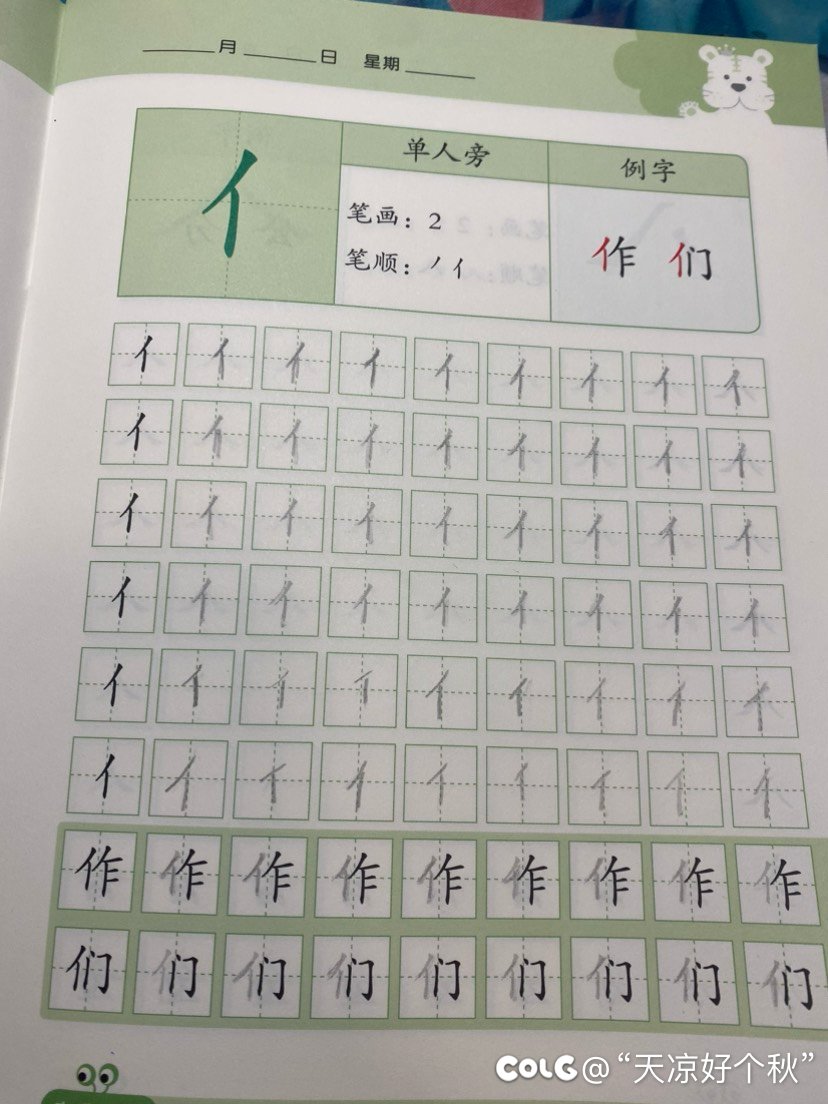 月 日 星期
亻 单人旁 例字
笔画：2
笔顺：丿亻
作 们
亻 亻 亻 亻 亻 亻 亻 亻 亻
亻 亻 亻 亻 亻 亻 亻 亻 亻
亻 亻 亻 亻 亻 亻 亻 亻 亻
亻 亻 亻 亻 亻 亻 亻 亻 亻
亻 亻 亻 亻 亻 亻 亻 亻 亻
亻 亻 亻 亻 亻 亻 亻 亻 亻
作 作 作 作 作 作 作 作 作
们 们 们 们 们 们 们 们 们
COLG@“天凉好个秋”